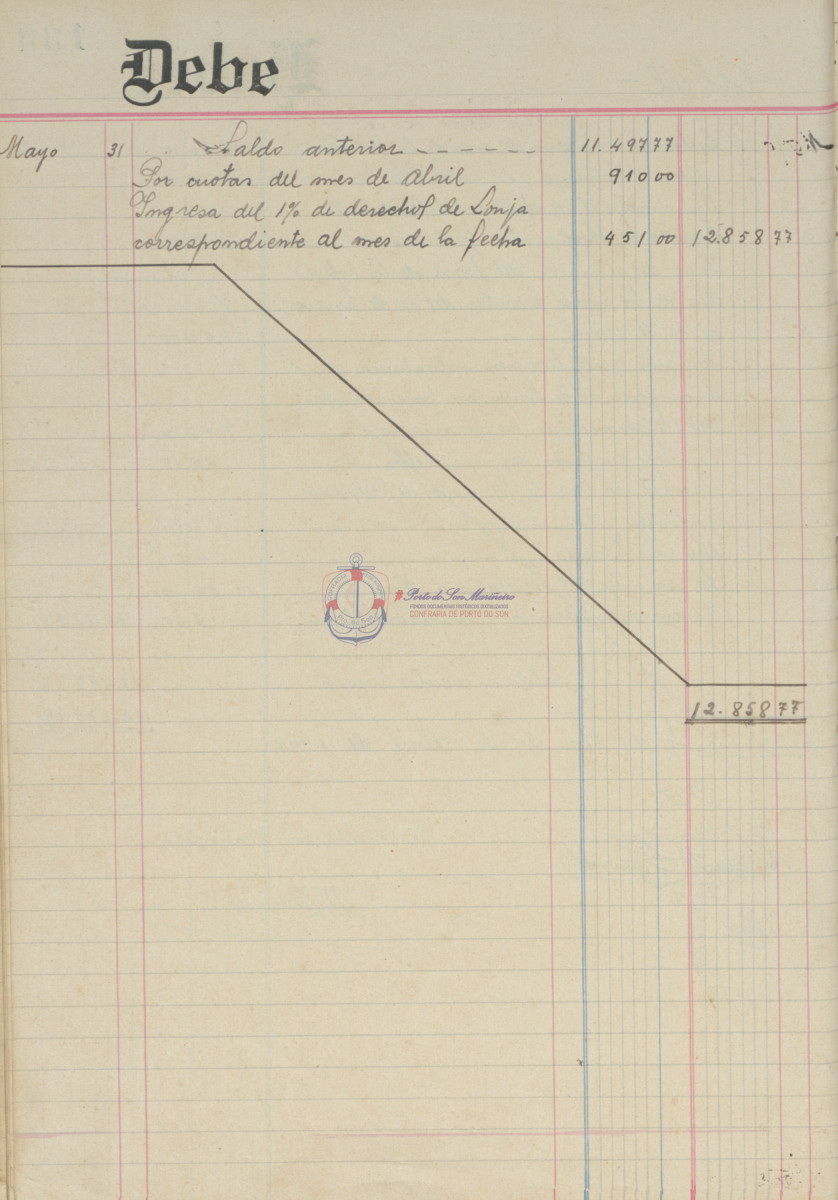 Debe
Mayo 31 Saldo anterior - - - - - - 11.497 77
Por cuotas del mes de Abril 910 00
Ingresa del 1% de derechos de Lonja
correspondiente al mes de la fecha 451 00 12.858 77
#Porto do Son Mariñeiro
FONDOS DOCUMENTAIS HISTÓRICOS DIXITALIZADOS
CONFRARÍA DE PORTO DO SON
12.858 77